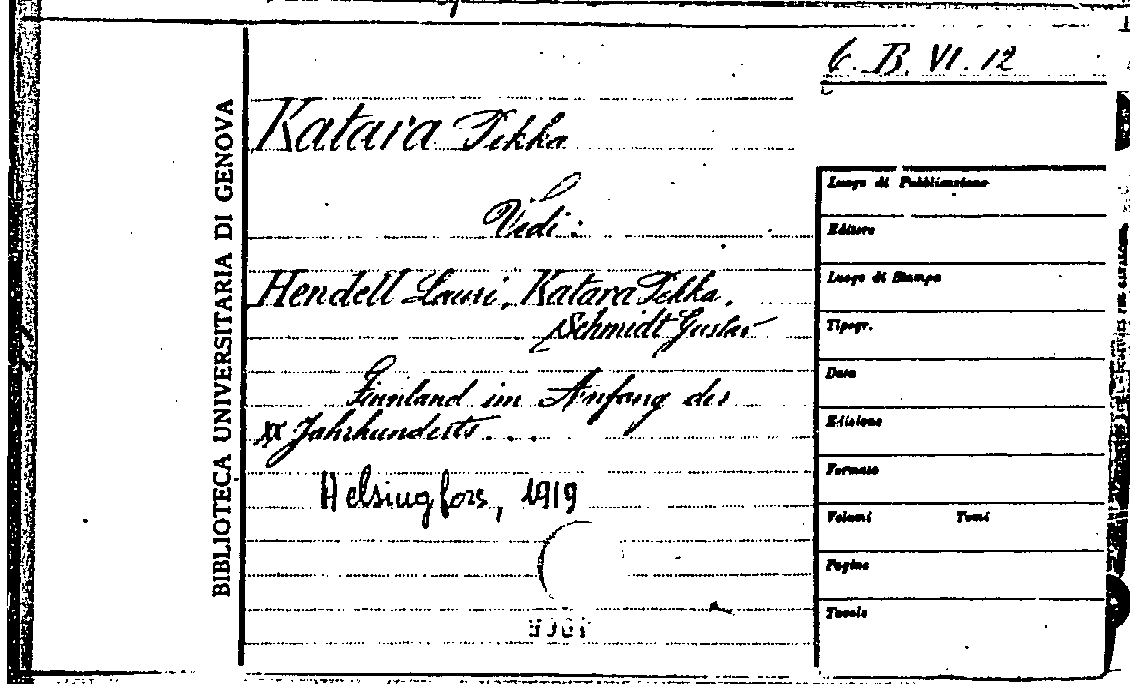 6. B. VI. 12
BIBLIOTECA UNIVERSITARIA DI GENOVA
Katara Pekka
Vedi:
Hendell Lauri, Katara Pekka,
Schmidt Gustav
Finnland im Anfang des
XX Jahrhunderts...
Helsingfors, 1919
Luogo di Pubblicazione
Editore
Luogo di Stampa
Tipogr.
Data
Edizione
Formato
Volumi Tomi
Pagine
Tavole